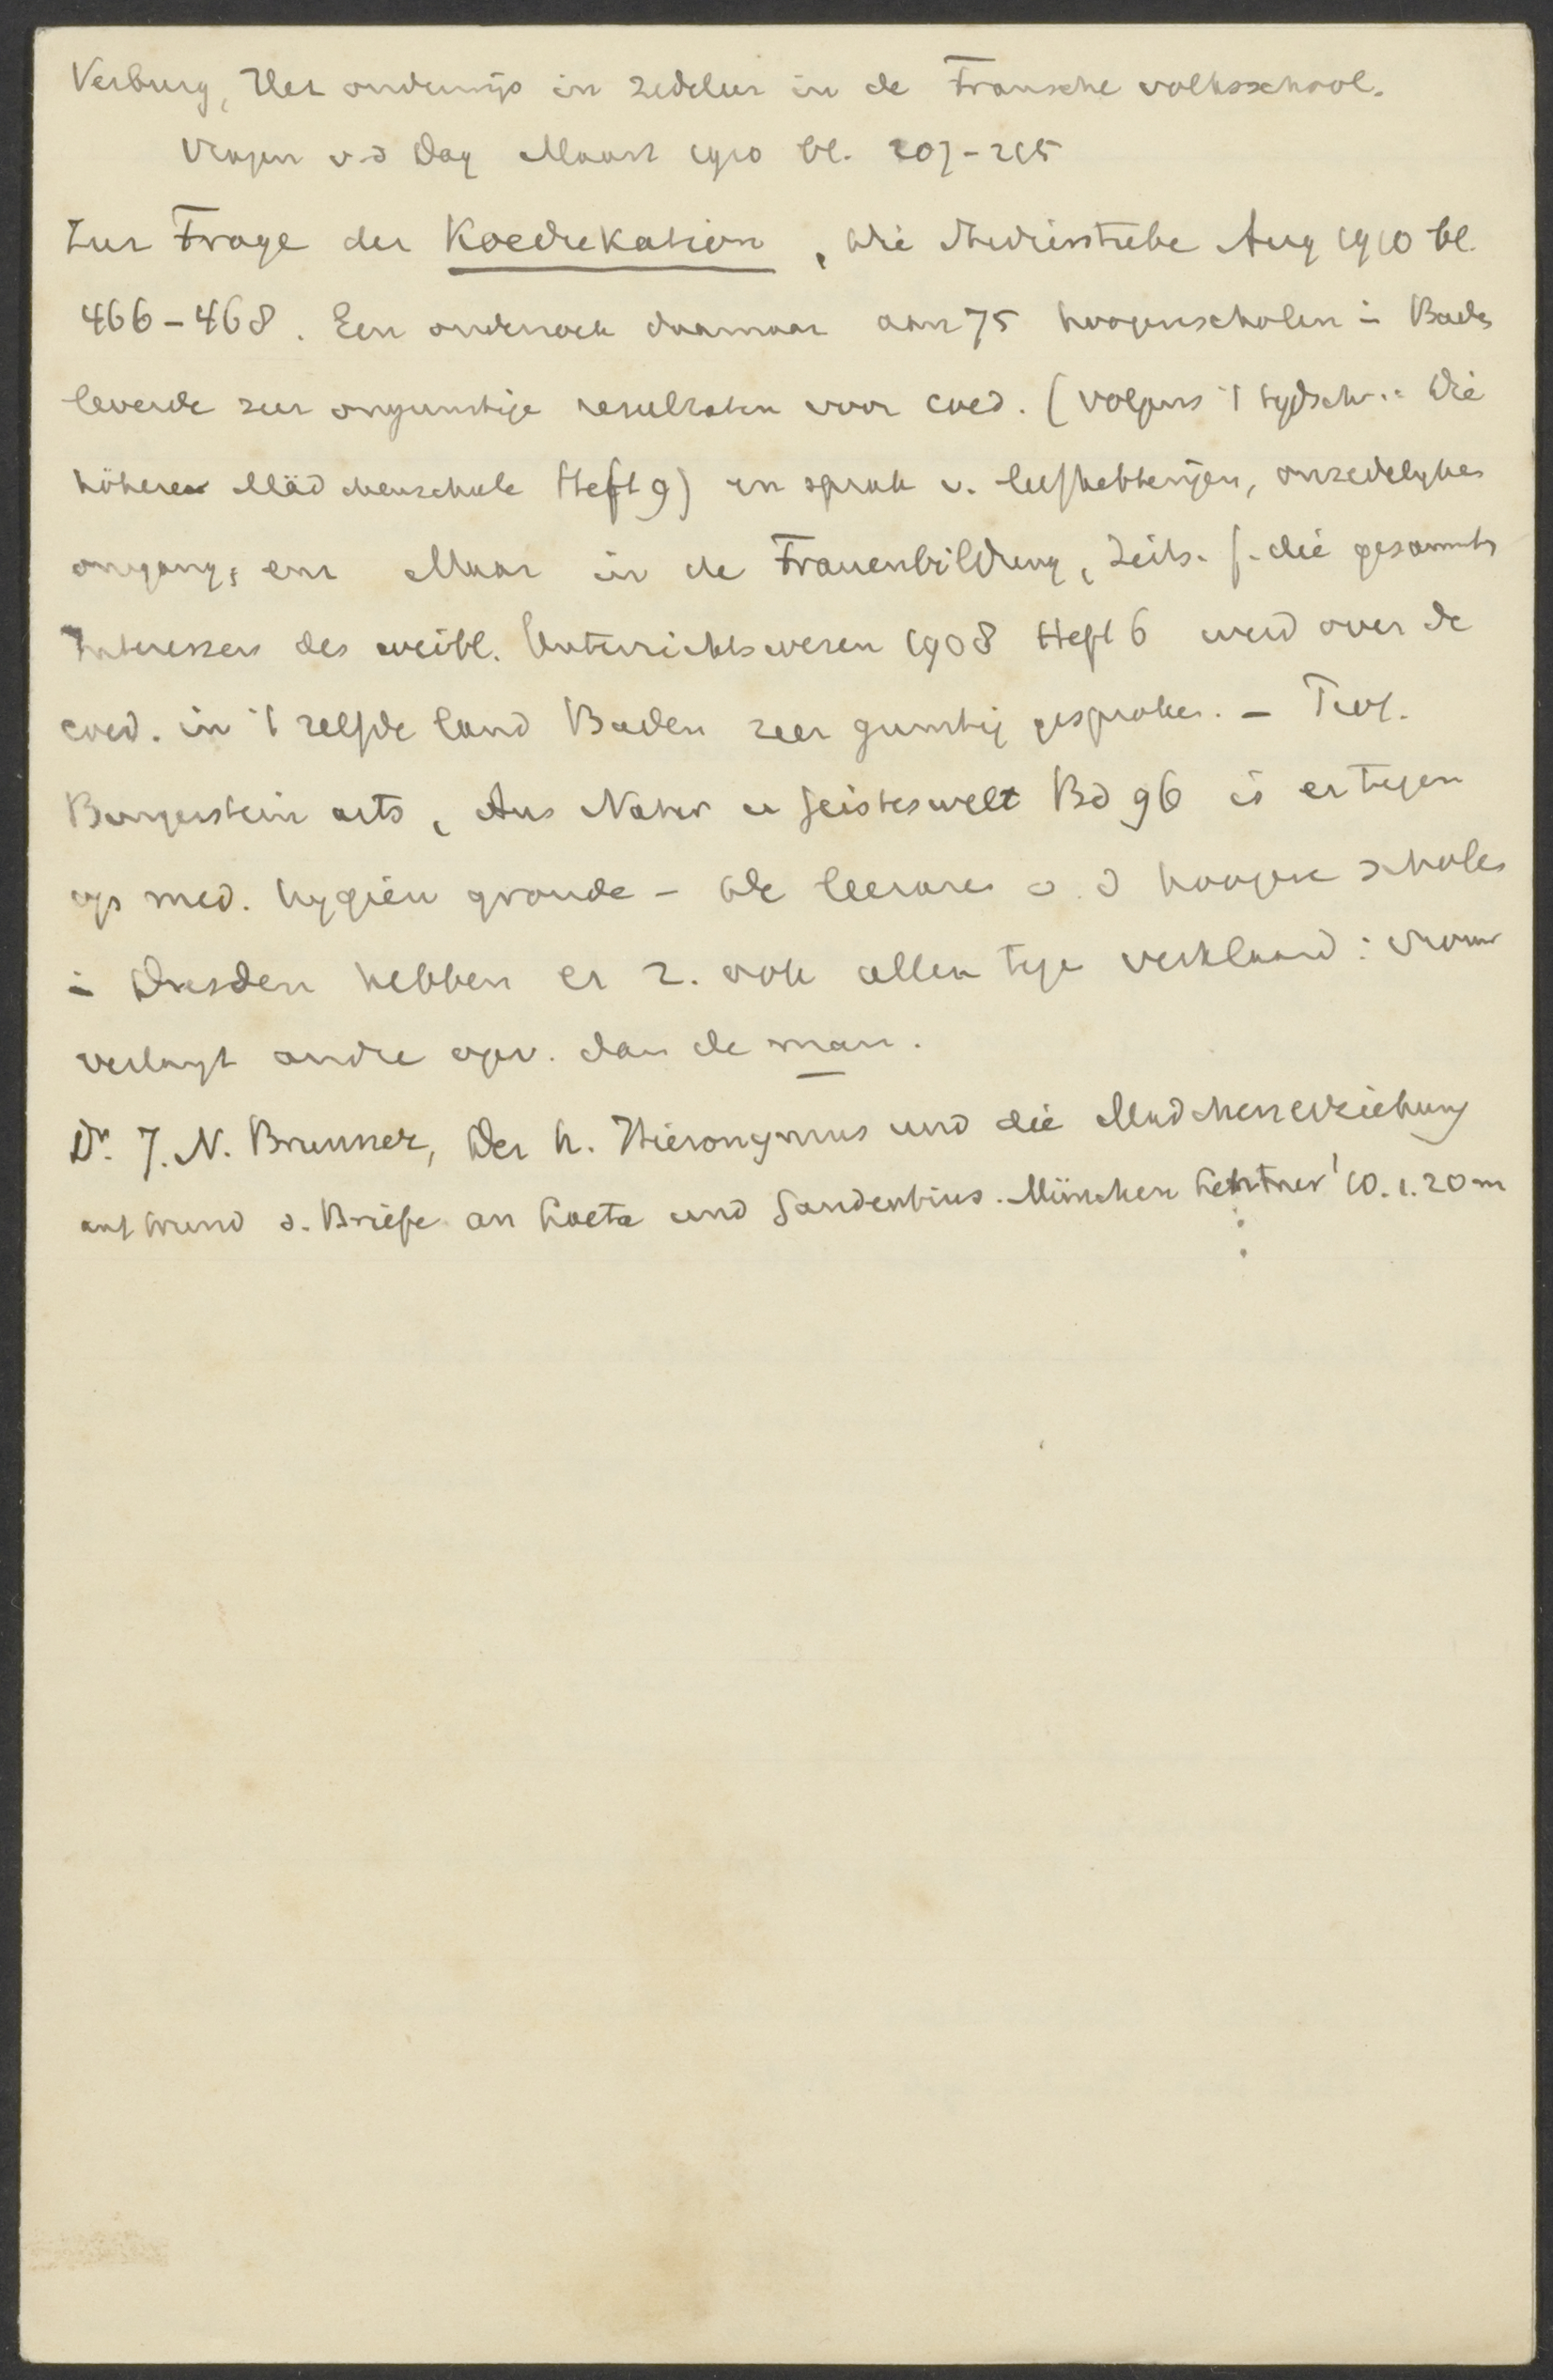 Verburg, Het onderwijs in zedeleer in de Fransche volksschool.
Vragen v. d Dag Maart 1910 bl. 207-215
Zur Frage der Koedukation, Die Studierstube Aug 1910 bl.
466-468. Een onderzoek daarnaar aan 75 hoogerescholen in Baden
leverde zeer ongunstige resultaten voor coed. (volgens 't tydschr.: Die
höhere Mädchenschule Heft 9) en sprak v. liefhebberijen, onzedelyken
omgang, enz Maar in de Frauenbildung, Zeits. f. die gesammten
Interessen des weibl. Unterrichtswesen 1908 Heft 6 werd over de
coed. in 't zelfde land Baden zeer gunstig gesproken. - Prof.
Burgerstein arts, Aus Natur u Geisteswelt Bd 96 is er tegen
op med. hygiën gronde - De leeraren a. d hoogere scholen
in Dresden hebben er z. ook allen tege verklaard: vrouw
verlangt andre opv. dan de man.
Dr. J. N. Brunner, Der h. Hieronymus und die Mädchenerziehung
auf Grund s. Briefe an Laeta und Gaudentius. München Lentner '10. 1.20 m